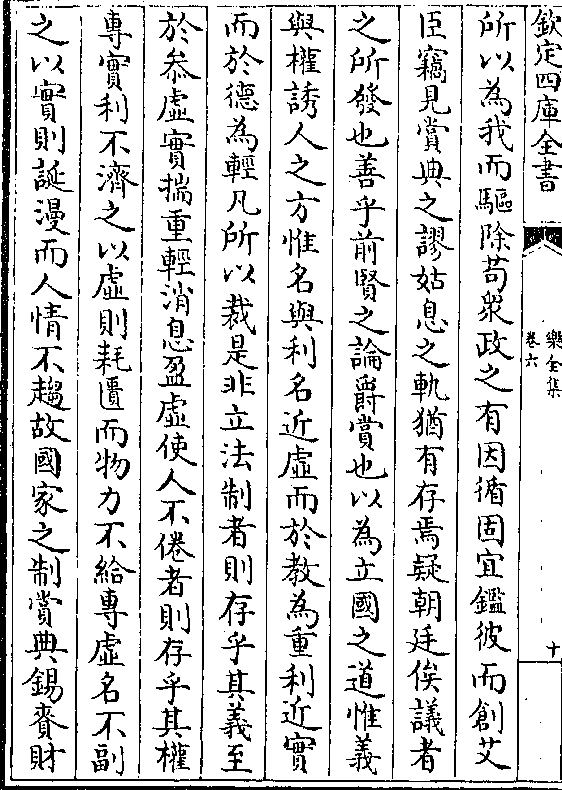 欽定四庫全書
樂全集
卷六
十
所以為我而驅除苟衆政之有因循固宜鑑彼而創艾
臣竊見賞典之謬姑息之軌猶有存焉疑朝廷俟議者
之所發也善乎前賢之論爵賞也以為立國之道惟義
與權誘人之方惟名與利名近虛而於教為重利近實
而於德為輕凡所以裁是非立法制者則存乎其義至
於叅虛實揣重輕消息盈虛使人不倦者則存乎其權
專實利不濟之以虛則耗匱而物力不給專虛名不副
之以實則誕漫而人情不趨故國家之制賞典錫賚財